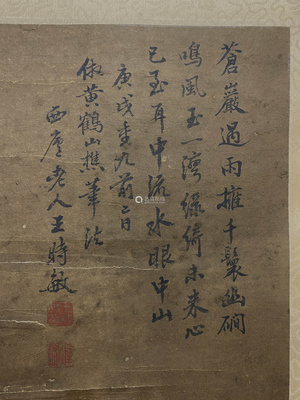 蒼巖過雨擁千鬟幽磵
鳴風玉一灣綠綺未來心
已至耳中流水眼中山
庚戌重九前二日
倣黃鶴山樵筆法
西廬老人王時敏